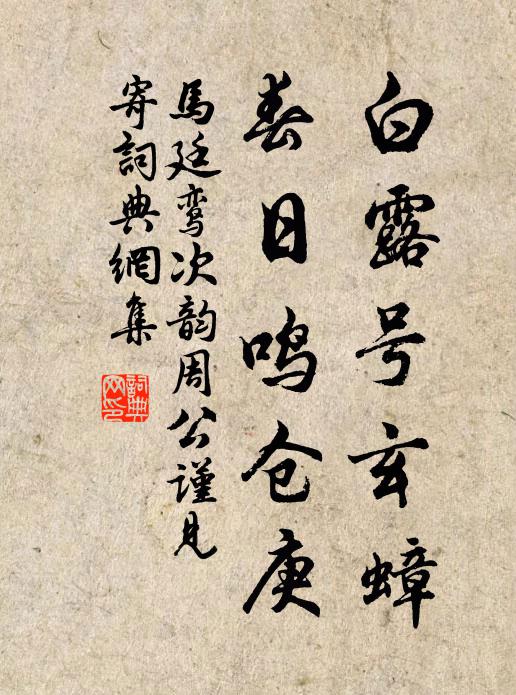 白露号玄蟑
春日鸣仓庚
馬廷鸾次韵周公谨見
寄詞典網集
詞典网印